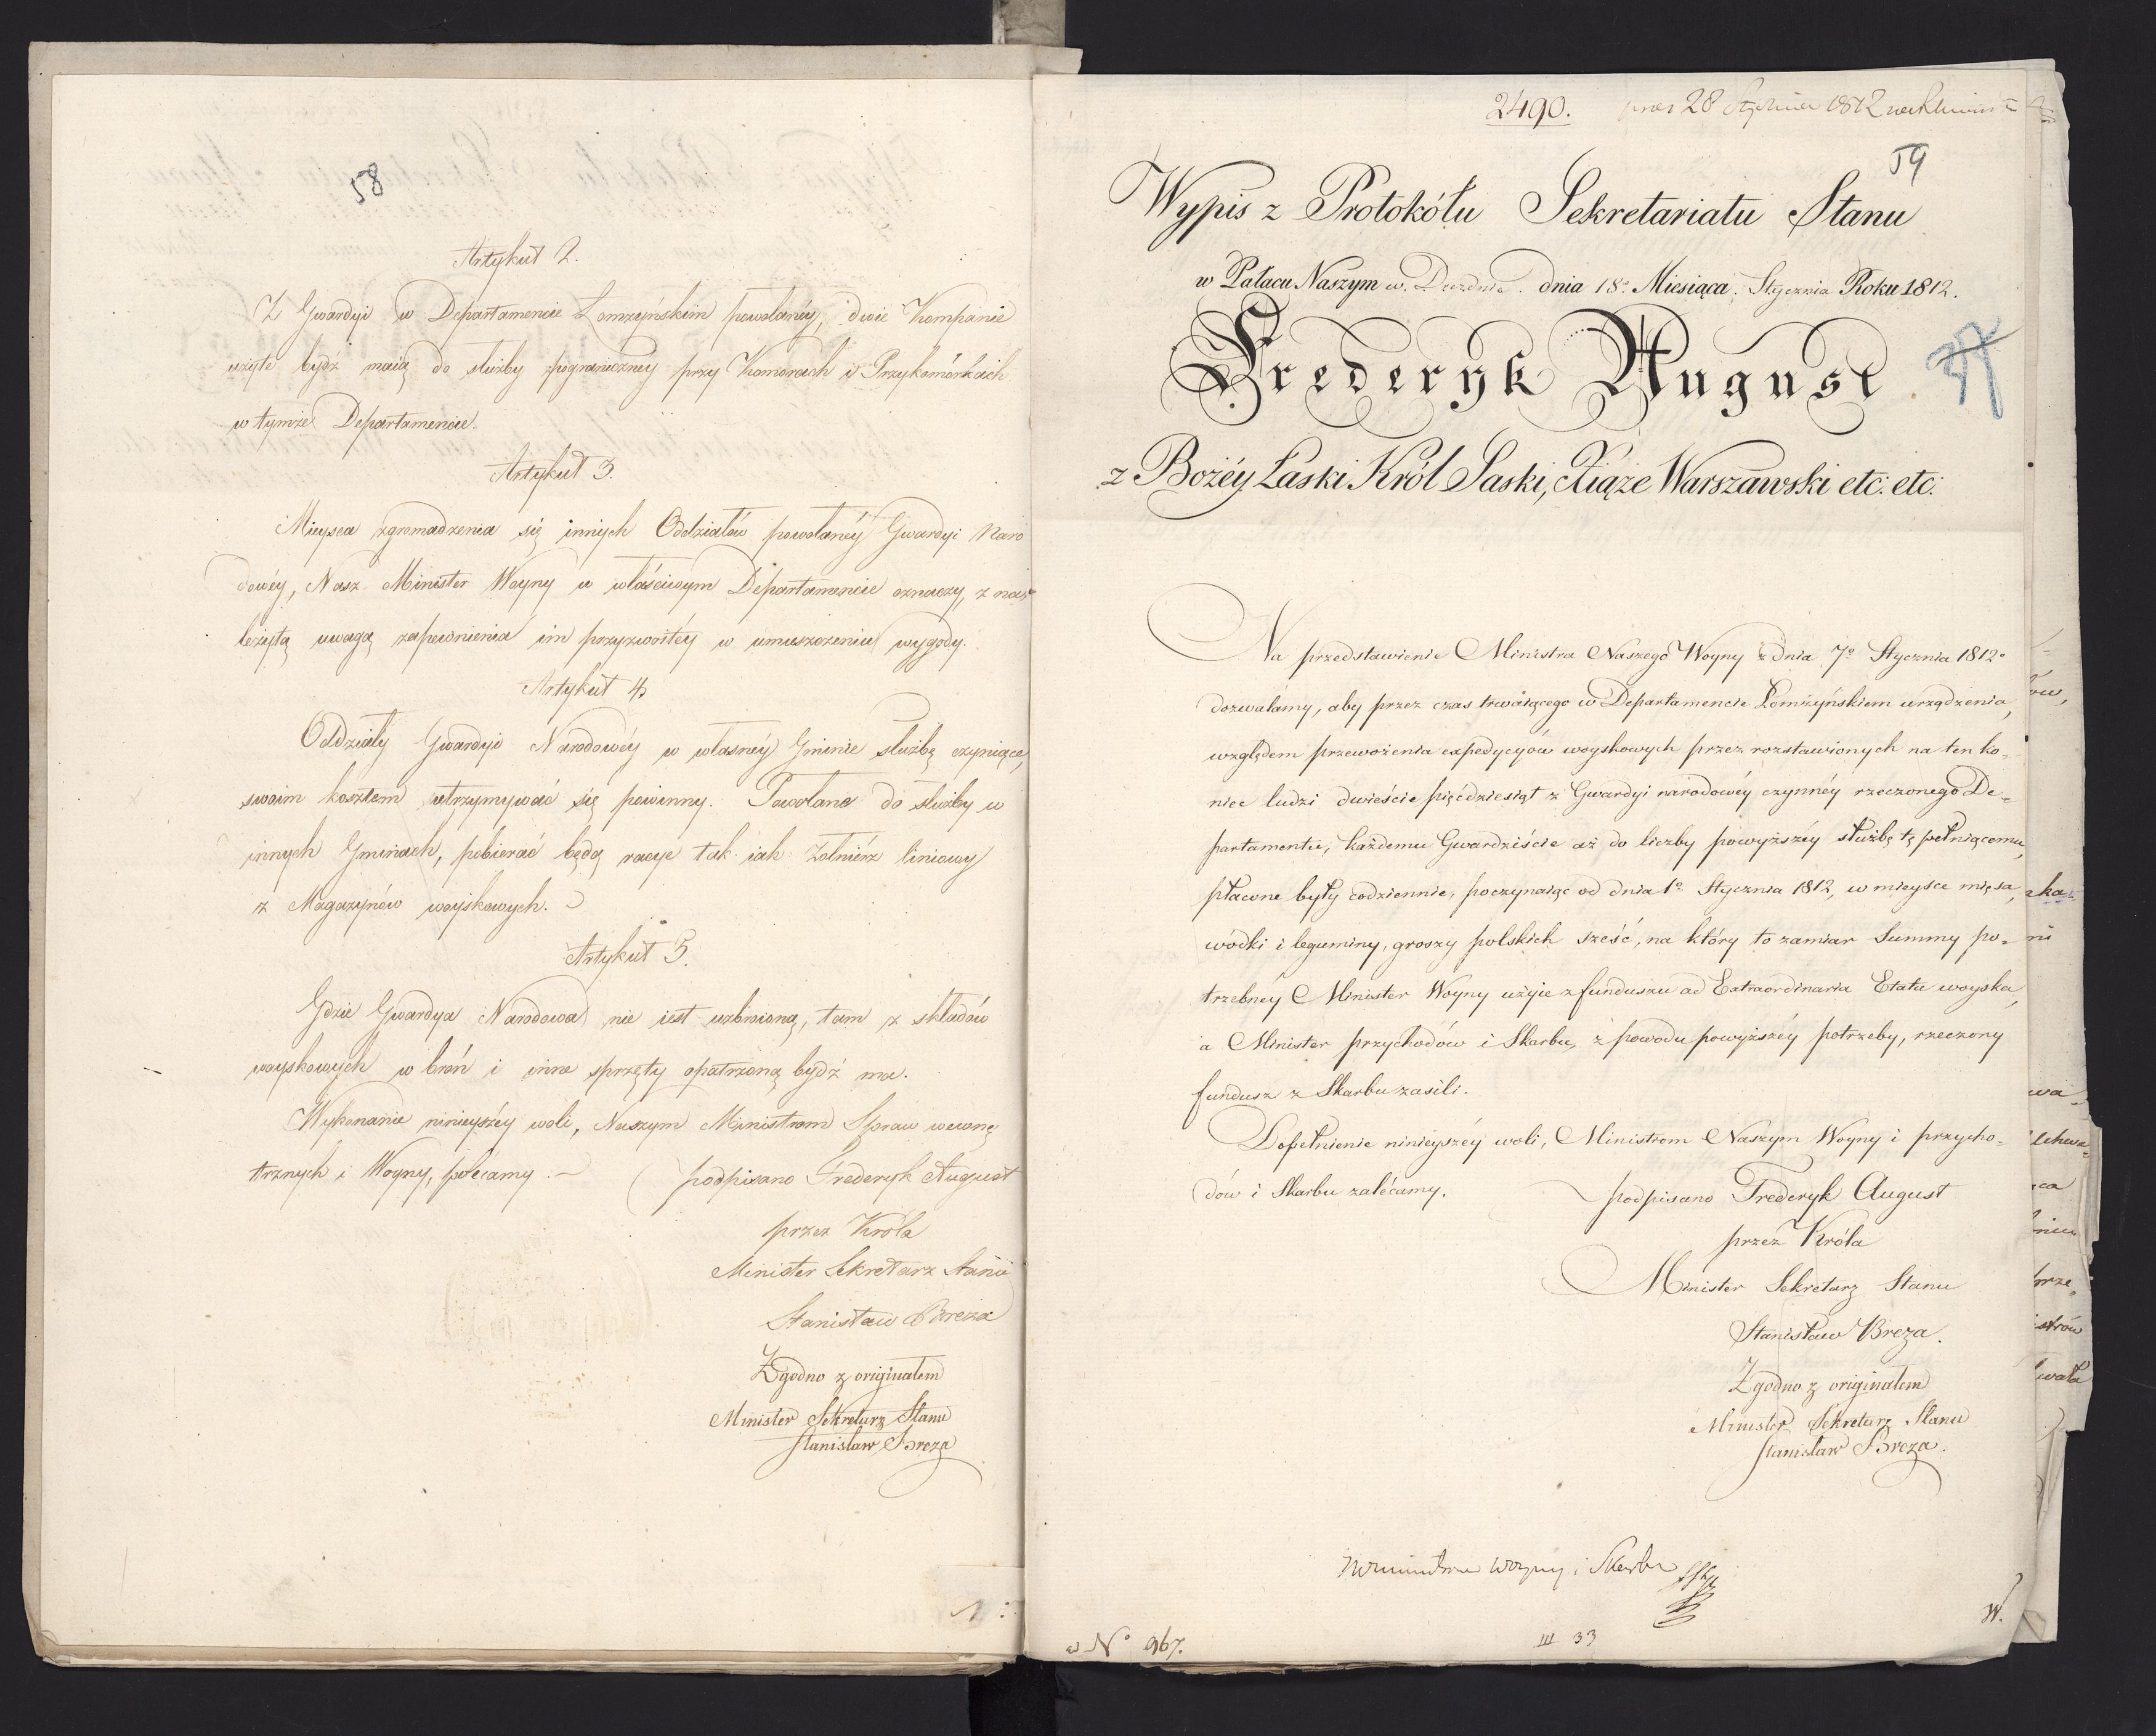 58
Artykuł 2.
Z Gwardyi w Departamencie Łomżyńskim powołanéy, dwie Kompanie
wzięte bydź maią do służby pogranicznéy przy Komorach i Przykomórkach
w tymże Departamencie.
Artykuł 3.
Mieysca zgromadzenia się innych Oddziałów powołanéy Gwardyi Naro
dowéy, Nasz Minister Woyny w właściwym Departamencie oznaczy, z na-
leżytą uwagą zapewnienia im przyzwoitéy w umieszczeniu wygody.
Artykuł 4.
Oddziały Gwardyi Narodowéy w własnéy Gminie służbę czyniące,
swoim kosztem utrzymywać się powinny. Powołane do służby w
innych Gminach, pobierać będą racye tak iak Żołnierz liniowy
z Magazynów woyskowych.
Artykuł 5.
Gdzie Gwardya Narodowa nie iest uzbroioną, tam z składów
woyskowych w broń i inne sprzęty opatrzoną bydź ma.
Wykonanie ninieyszéy woli, Naszym Ministrom Spraw wewnę
trznych i Woyny, polecamy. — podpisano Frederyk August
przez Króla
Minister Sekretarz Stanu
Stanisław Breza
Zgodno z originałem
Minister Sekretarz Stanu
Stanisław Breza
2490. 28 Stycznia 1812
59
Wypis z Protokółu Sekretariatu Stanu
w Pałacu Naszym w. Dreźnie. dnia 18º Miesiąca. Stycznia Roku 1812.
Frederyk August
z Bożéy Łaski Król Saski, Xiąże Warszawski etc. etc.
Na przedstawienie Ministra Naszego Woyny z dnia 7º Stycznia 1812º
dozwalamy, aby przez czas trwaiącego w Departamencie Łomżyńskiem urządzenia,
względem przewożenia expedycyów woyskowych przez rozstawionych na ten ko-
niec ludzi dwieście pięćdziesiąt z Gwardyi narodowéy czynnéy rzeczonego De-
partamentu, każdemu Gwardziście aż do liczby powyższéy służbę tę pełniącemu,
płacone były codziennie, poczynaiąc od dnia 1º Stycznia 1812, w mieysce mięsa,
wódki i leguminy, groszy polskich sześć, na który to zamiar Summy po-
trzebnéy Minister Woyny użyie z funduszu ad Extraordinaria Etatu woyska,
a Minister przychodów i Skarbu, z powodu powyższéy potrzeby, rzeczony
fundusz z Skarbu zasili.
Dopełnienie ninieyszéy woli, Ministrom Naszym Woyny i przycho-
dów i Skarbu zalécamy. podpisano Frederyk August
przez Króla
Minister Sekretarz Stanu
Stanisław Breza.
Zgodno z originałem
Minister Sekretarz Stanu
Stanisław Breza.
Woyny i Skarbu
W.
w Nº 967.
III 33